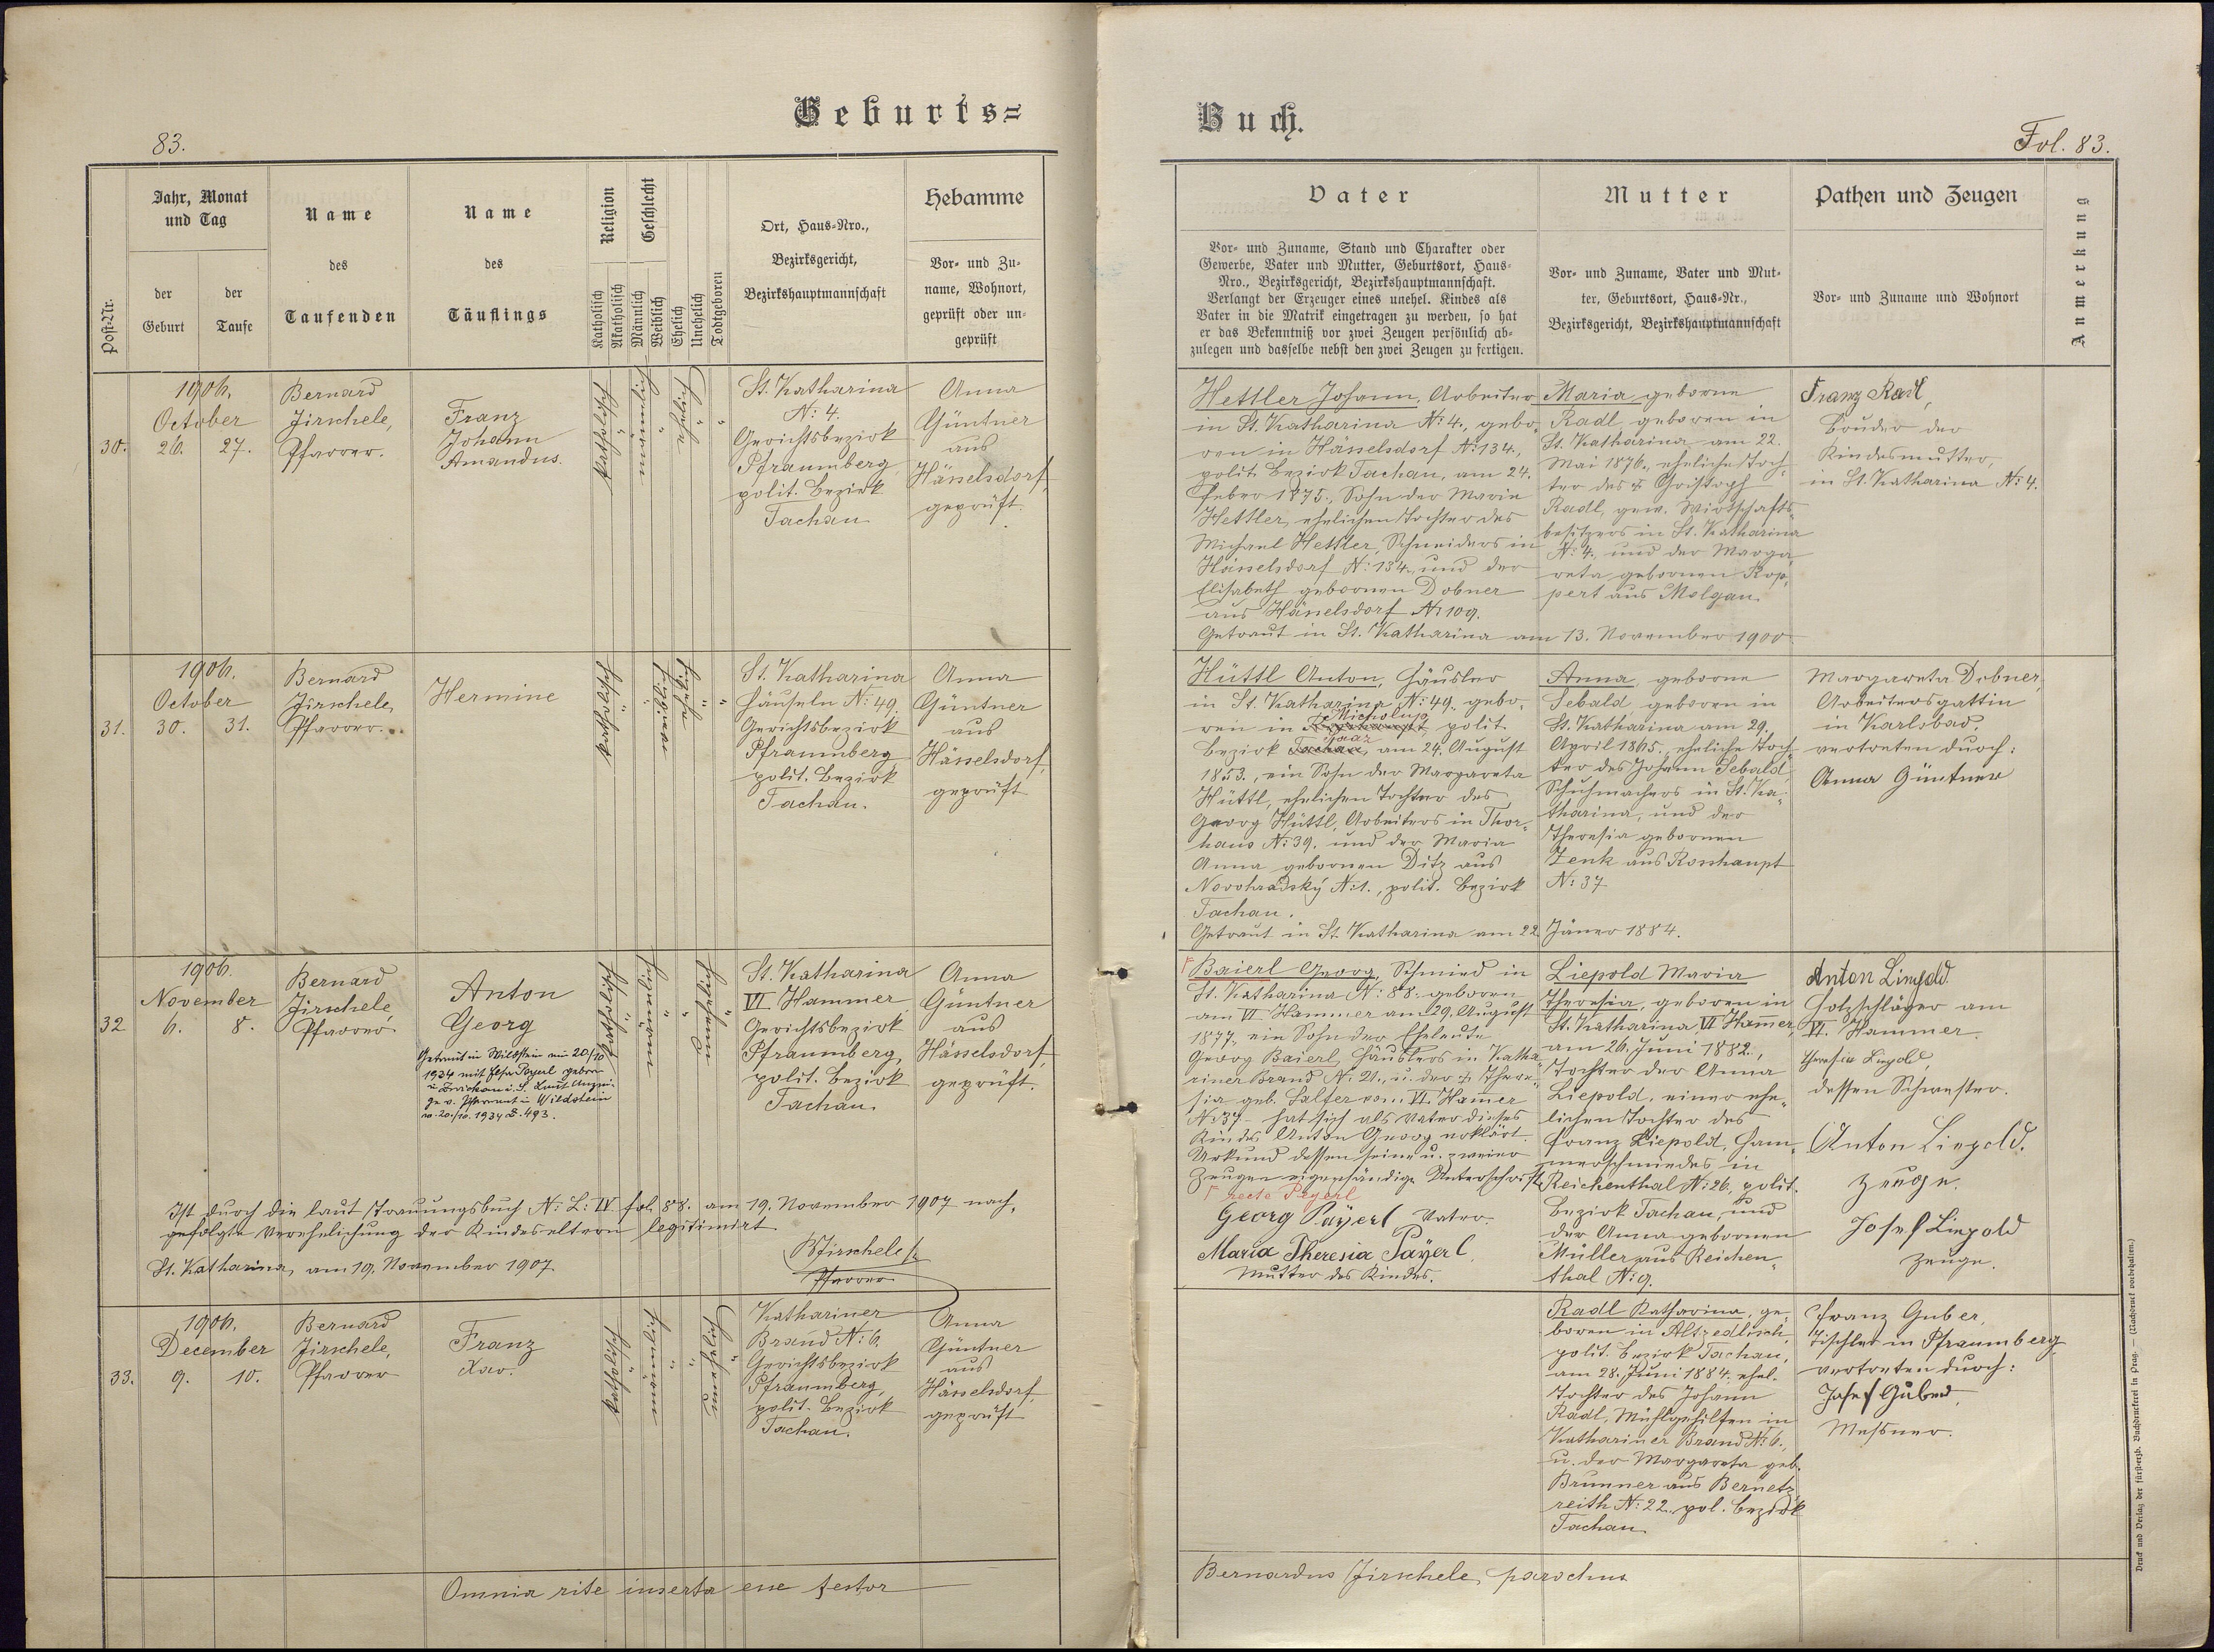 Geburts=
83.
Post-Nr.
Jahr, Monat
und Tag
der
Geburt
der
Taufe
Name
des
Taufenden
Name
des
Täuflings
Religion
Katholisch
Akatholisch
Geschlecht
Männlich
Weiblich
Ehelich
Unehelich
Todtgeboren
Ort, Haus-Nro.,
Bezirksgericht,
Bezirkshauptmannschaft
Hebamme
Vor- und Zu-
name, Wohnort,
geprüft oder un-
geprüft
30.
1906.
October
26. 27.
Bernard
Jirschele,
Pfarrer.
Franz
Johann
Amandus.
katholisch
männlich
ehelich
St. Katharina
N: 4.
Gerichtsbezirk
Pfraumberg
polit. Bezirk
Tachau
Anna
Güntner
aus
Hässelsdorf,
geprüft.
31.
1906.
October
30. 31.
Bernard
Jirschele,
Pfarrer.
Hermine
katholisch
weiblich
ehelich
St. Katharina
Häuseln N: 49.
Gerichtsbezirk
Pfraumberg
polit. Bezirk
Tachau.
Anna
Güntner
aus
Hässelsdorf,
geprüft
32
1906.
November
6. 8.
Bernard
Jirschele,
Pfarrer
Anton
Georg
Getraut in Wildstein am 20/10
1934 mit Elsa
Wildstein
no. 20./10. 1934 Z. 493.
katholisch
männlich
unehelich
St. Katharina
VI. Hammer
Gerichtsbezirk
Pfraumberg,
polit. Bezirk
Tachau.
Anna
Güntner
aus
Hässelsdorf,
geprüft.
Ist durch die laut Trauungsbuch N: L: IV fol. 88. am 19. November 1907 nach-
gefolgte Verehelichung der Kindeseltern legitimirt
St. Katharina, am 19. November 1907.
BJirschele
Pfarrer
33.
1906.
December
9. 10.
Bernard
Jirschele,
Pfarrer
Franz
Xav.
katholisch
männlich
unehelich
Kathariner
Brand N: 6.
Gerichtsbezirk
Pfraumberg,
polit. Bezirk
Tachau.
Anna
Güntner
aus
Hässelsdorf,
geprüft
Omnia rite inserta esse testor
Buch.
Fol. 83.
Vater
Vor- und Zuname, Stand und Charakter oder
Gewerbe, Vater und Mutter, Geburtsort, Haus-
Nro., Bezirksgericht, Bezirkshauptmannschaft.
Verlangt der Erzeuger eines unehel. Kindes als
Vater in die Matrik eingetragen zu werden, so hat
er das Bekenntniß vor zwei Zeugen persönlich ab-
zulegen und dasselbe nebst den zwei Zeugen zu fertigen.
Mutter
Vor- und Zuname, Vater und Mut-
ter, Geburtsort, Haus-Nr.,
Bezirksgericht, Bezirkshauptmannschaft
Pathen und Zeugen
Vor- und Zuname und Wohnort
Anmerkung
Hettler Johann, Arbeiter
in St. Katharina N: 4., gebo-
ren in Hässelsdorf N: 134.,
polit. Bezirk Tachau, am 24.
Feber 1875., Sohn der Maria
Hettler, ehelichen Tochter des
Michael Hettler, Schneiders in
Hässelsdorf N: 134., und der
Elisabeth gebornen Dobner
aus Hässelsdorf N: 109.
Getraut in St. Katharina am 13. November 1900.
Maria geborne
Radl, geboren in
St. Katharina am 22.
Mai 1876., eheliche Toch-
ter des † Christoph
Radl, gew. Wirtschafts-
besitzers in St. Katharina
N: 4. und der Marga-
reta gebornen Rop-
pert aus Molgau.
Franz Radl,
Bruder der
Kindesmutter,
in St. Katharina N: 4.
Hüttl Anton, Häusler
in St. Katharina N: 49. gebo-
ren in polit.
Bezirk Tachau, am 24. August
1853., ein Sohn der Margareta
Hüttl, ehelichen Tochter des
Georg Hüttl, Arbeiters in Thor-
haus N: 39. und der Maria
Anna gebornen Ditz aus
Novohradský N: 1., polit. Bezirk
Tachau.
Getraut in St. Katharina am 22. Jäner 1884.
Anna, geborne
Sebald geboren in
St. Katharina am 29.
April 1865., eheliche Toch-
ter des Johann Sebald,
Schuhmachers in St. Ka-
tharina, und der
Theresia gebornen
Zenk aus Rosshaupt
N: 37
Margareta Dobner,
Arbeitersgattin
in Karlsbad,
vertreten durch:
Anna Güntner
Baierl Georg, Schmied in
St. Katharina N: 88. geboren
am VI. Hammer am 29. August
1877., ein Sohn der Eheleute
Georg Baierl, Häuslers in Katha-
riner Brand N: 21., u. der † There-
sia geb. Salfer vom VI. Hammer
N: 37 – hat sich als Vater dieses
Kindes Anton Georg erklärt.
Urkund dessen seine u. zweier
Zeugen eigenhändige Unterschrift
recte Payerl
Georg Payerl Vater.
Maria Theresia Payerl
Mutter des Kindes.
Liepold Maria
Theresia, geboren in
St. Katharina, VI Hammer,
am 26. Juni 1882.,
Tochter der Anna
Liepold, einer ehe-
lichen Tochter des
Franz Liepold, Ham-
merschmiedes in
Reichenthal N: 26., polit.
Bezirk Tachau, und
der Anna gebornen
Müller aus Reichen-
thal N: 9.
Anton Liepold
Holzschläger am
VI. Hammer.
Theresia Liepold,
dessen Schwester.
Anton Liepold.
Zeuge.
Josef Liepold
Zeuge.
Radl Katharina, ge-
boren in Altzedlisch,
polit. Bezirk Tachau,
am 28. Juni 1884. ehel.
Tochter des Johann
Radl, Mühlgehilfen in
Kathariner Brand N: 6.,
u. der Margareta geb.
Brunner aus Bernetz-
reith N: 22., pol. Bezirk
Tachau.
Franz Guber,
Tischler in Pfraumberg
vertreten durch:
Josef Guber,
Messner.
Bernardus Jirschele, parochus
Druck und Verlag der fürsterzb. Buchdruckerei in Prag. — (Nachdruck vorbehalten.)